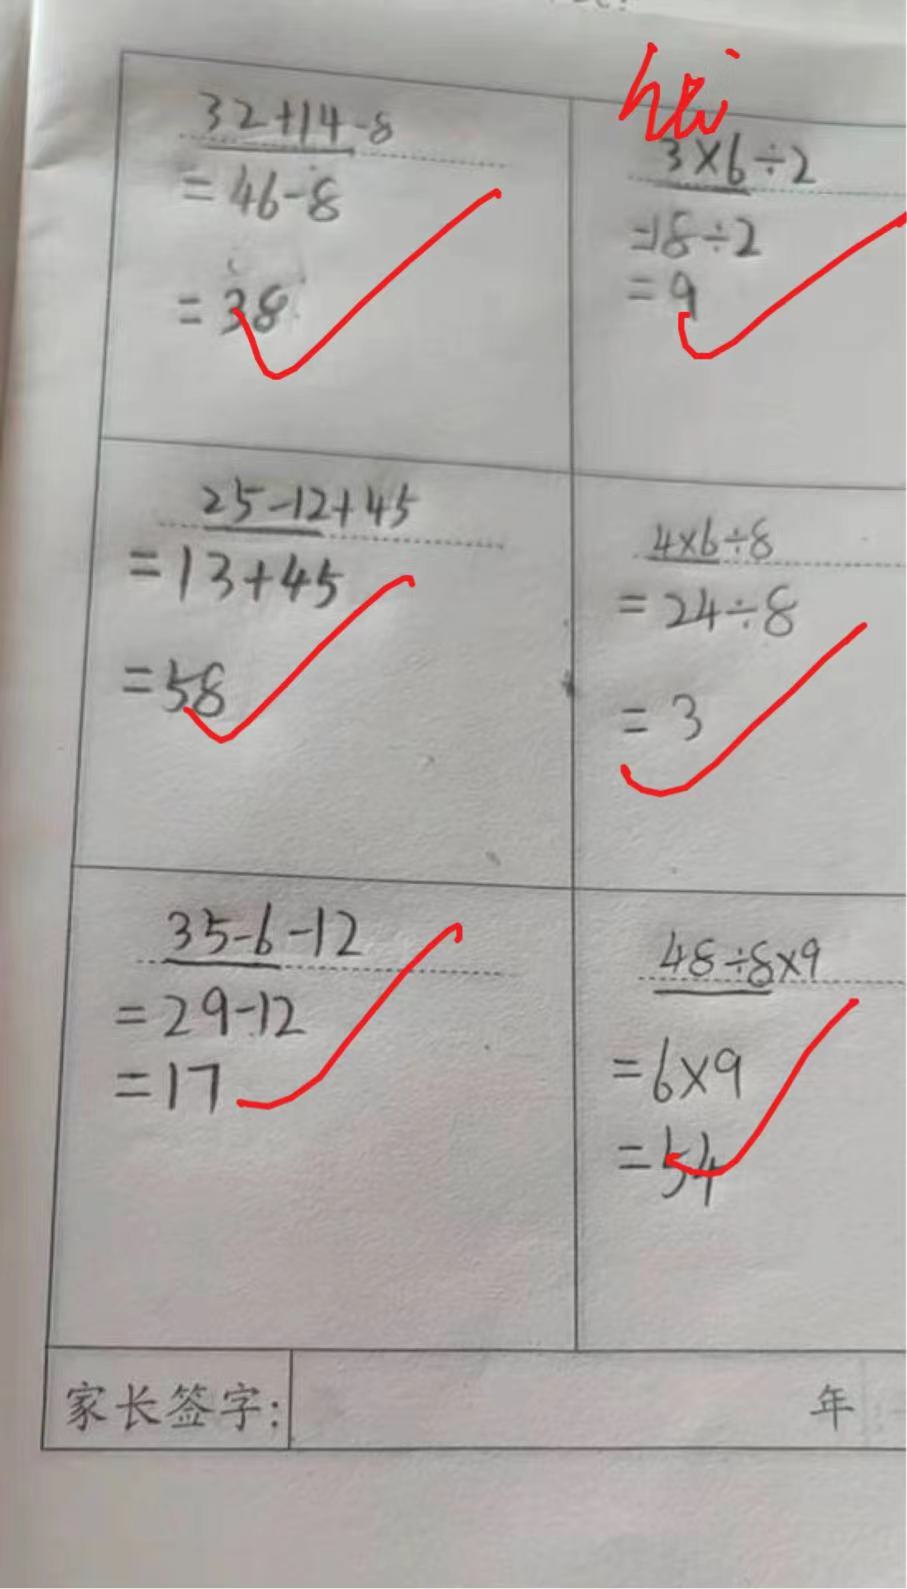 32+14-8
=46-8
=38
3×6÷2
=18÷2
=9
25-12+45
=13+45
=58
4×6÷8
=24÷8
=3
35-6-12
=29-12
=17
48÷8×9
=6×9
=54
家长签字:
年